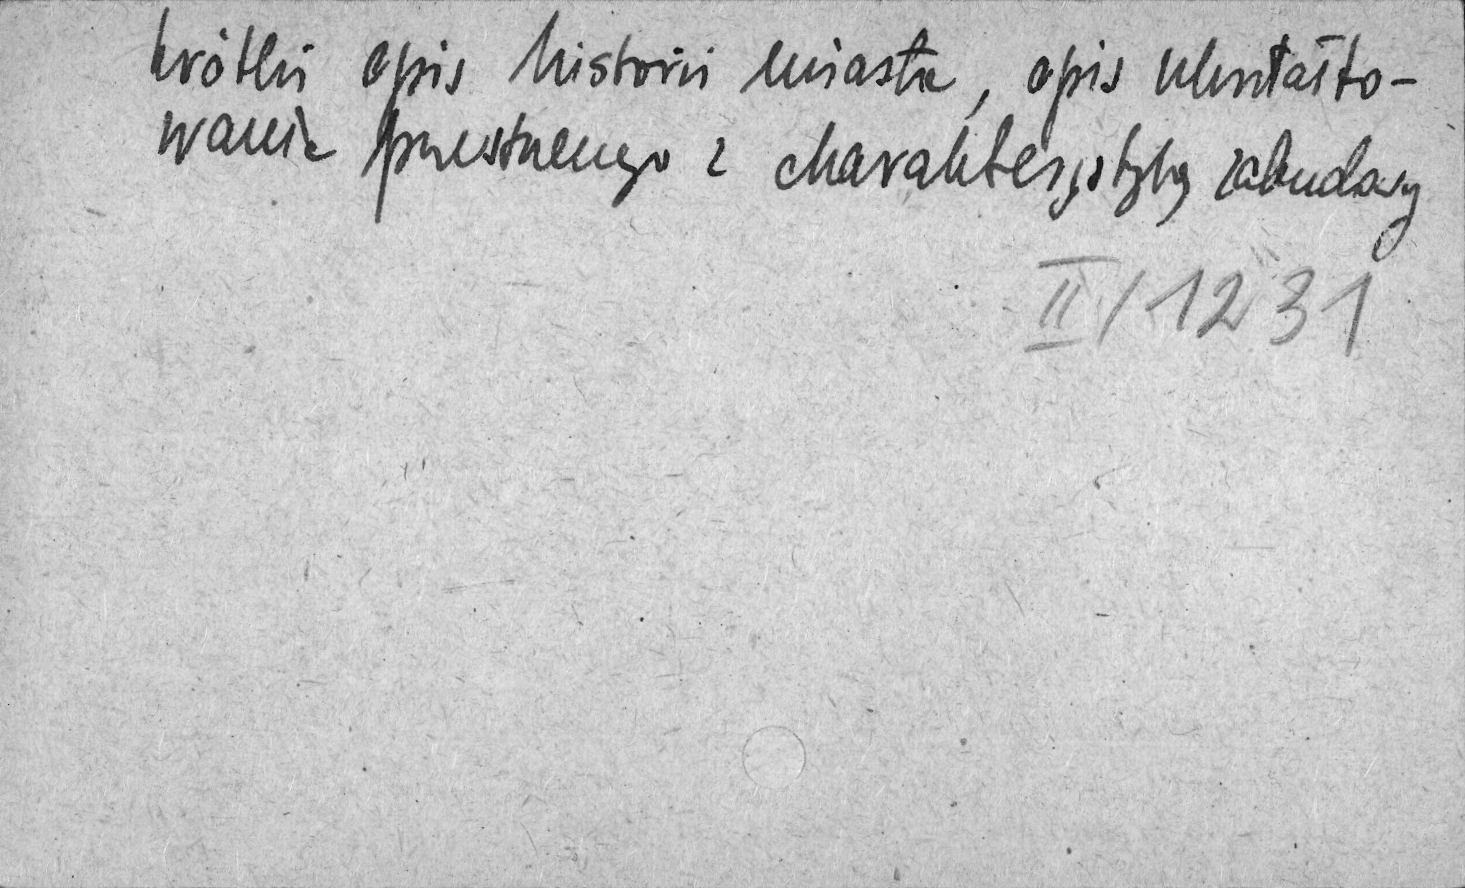 krótki opis historii miasta, opis ukształto-
wania przestrzennego z charakterystyką zabudowy
II/1231